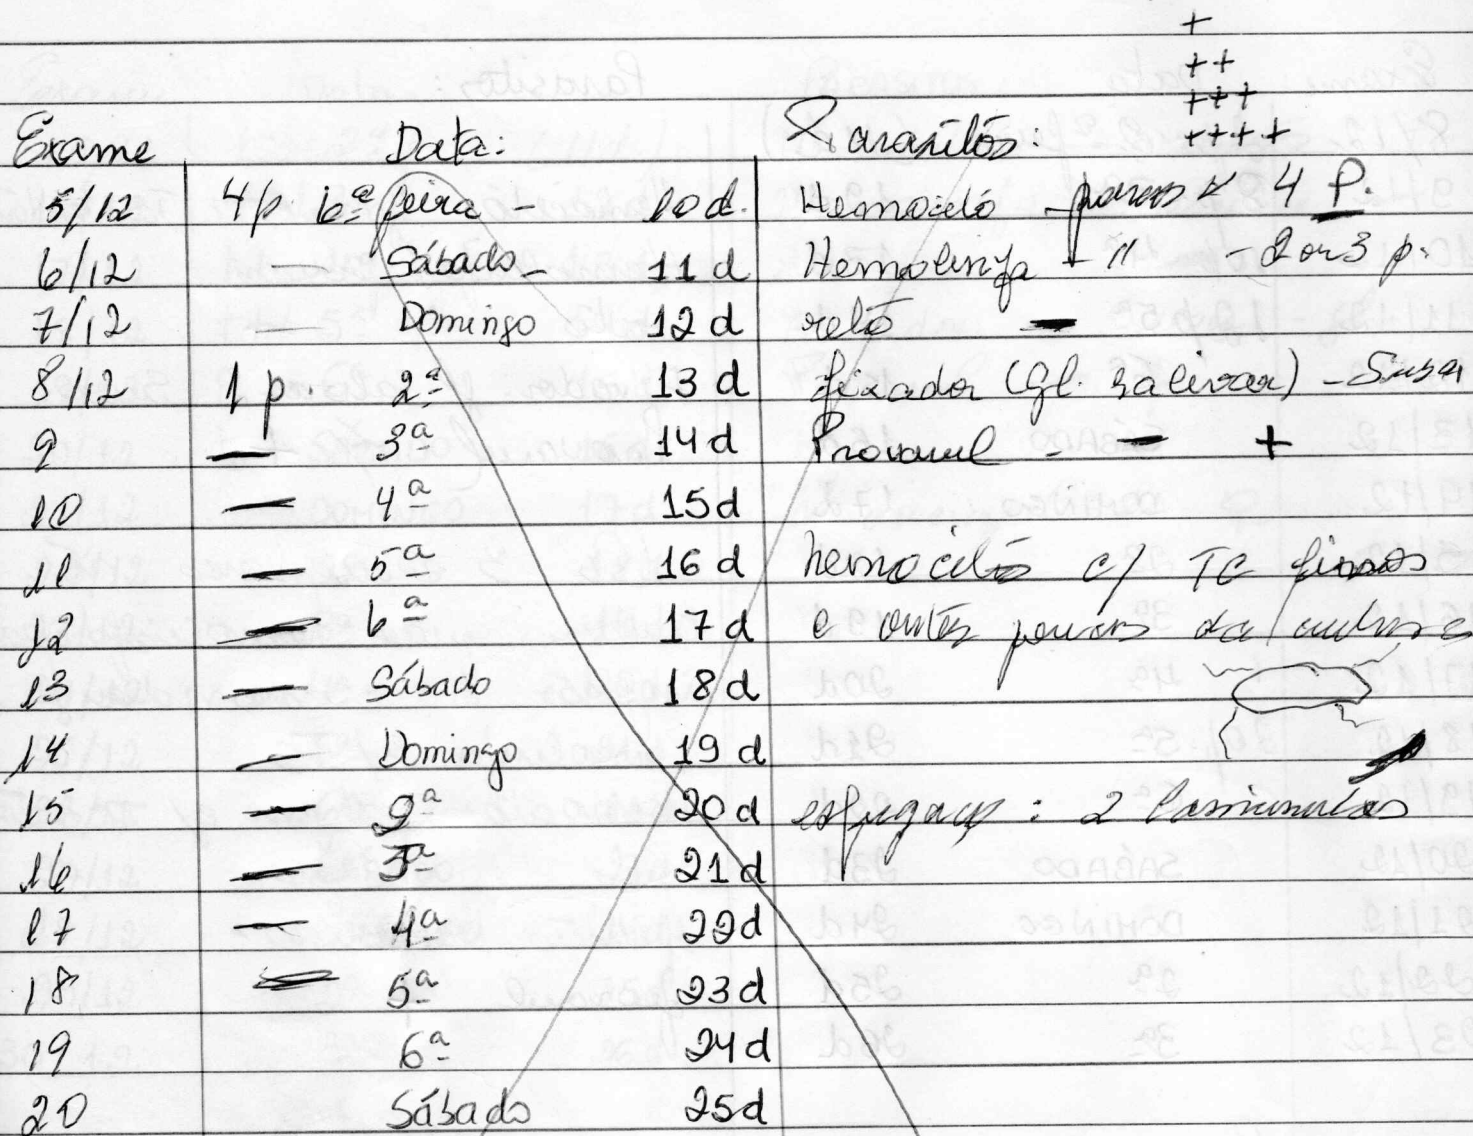 +
++
+++
Exame Data: Parasitos: ++++
5/12 4 p. 6ª feira - 10 d. Hemocitó - poucos 4 P.
6/12 — Sábado - 11 d Hemolinfa - " - 2 or 3 p.
7/12 — Domingo 12 d reto —
8/12 1 p. 2ª 13 d fixador (Gl. salivar) - Susa
9 — 3ª 14 d Provavel - — +
10 — 4ª 15 d
11 — 5ª 16 d hemocitos c/ TC finos
12 — 6ª 17 d e outros poucos da
13 — Sábado 18 d
14 — Domingo 19 d
15 — 2ª 20 d esfregaço : 2 laminulas
16 — 3ª 21 d
17 — 4ª 22 d
18 — 5ª 23 d
19 6ª 24 d
20 Sábado 25 d